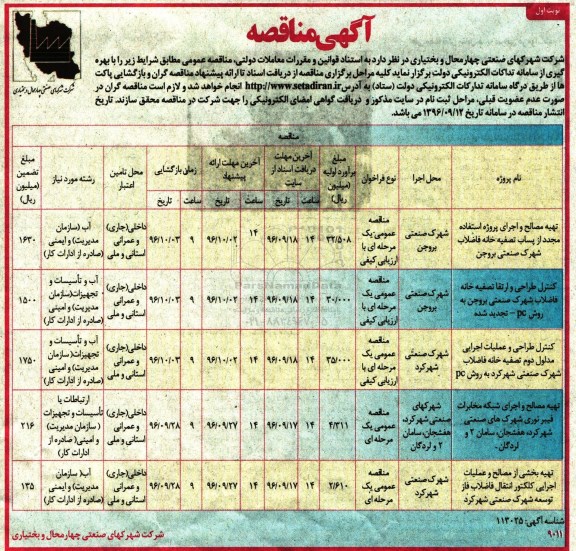 نوبت اول
آگهی مناقصه
شرکت شهرکهای صنعتی چهارمحال و بختیاری
شرکت شهرکهای صنعتی چهارمحال و بختیاری در نظر دارد به استناد قوانین و مقررات معاملات دولتی، مناقصه عمومی مطابق شرایط زیر را با بهره
گیری از سامانه تداکات الکترونیکی دولت برگزار نماید کلیه مراحل برگزاری مناقصه از دریافت اسناد تا ارائه پیشنهاد مناقصه گران و بازگشایی پاکت
ها از طریق درگاه سامانه تدارکات الکترونیکی دولت (ستاد) به آدرس http://www.setadiran.ir انجام خواهد شد و لازم است مناقصه گران در
صورت عدم عضویت قبلی، مراحل ثبت نام در سایت مذکور و دریافت گواهی امضای الکترونیکی را جهت شرکت در مناقصه محقق سازند. تاریخ
انتشار مناقصه در سامانه تاریخ ۱۳۹۶/۰۹/۱۲ می باشد.
مناقصه
نام پروژه
محل اجرا
نوع فراخوان
مبلغ
برآورد اولیه
(میلیون
ریال)
آخرین مهلت
دریافت اسناد از
سایت
ساعت تاریخ
آخرین مهلت ارائه
پیشنهاد
ساعت تاریخ
زمان بازگشایی
ساعت تاریخ
محل تامین
اعتبار
رشته مورد نیاز
مبلغ
تضمین
(میلیون
ریال)
تهیه مصالح و اجرای پروژه استفاده
مجدد از پساب تصفیه خانه فاضلاب
شهرک صنعتی بروجن
شهرک صنعتی
بروجن
مناقصه
عمومی یک
مرحله ای با
ارزیابی کیفی
۳۲/۵۰۸
۱۴ ۹۶/۰۹/۱۸
۱۴ ۹۶/۱۰/۰۲
۹ ۹۶/۱۰/۰۳
داخلی(جاری)
و عمرانی
استانی و ملی
آب (سازمان
مدیریت) و ایمنی
(صادره از ادارات کار)
۱۶۳۰
کنترل طراحی و ارتقا تصفیه خانه
فاضلاب شهرک صنعتی بروجن به
روش pc – تجدید شده
شهرک صنعتی
بروجن
مناقصه
عمومی یک
مرحله ای با
ارزیابی کیفی
۳۰/۰۰۰
۱۴ ۹۶/۰۹/۱۸
۱۴ ۹۶/۱۰/۰۲
۹ ۹۶/۱۰/۰۳
داخلی(جاری)
و عمرانی
استانی و ملی
آب و تأسیسات و
تجهیزات(سازمان
مدیریت) و ایمنی
(صادره از ادارات کار)
۱۵۰۰
کنترل طراحی و عملیات اجرایی
مدلول دوم تصفیه خانه فاضلاب
شهرک صنعتی شهرکرد به روش pc
شهرک صنعتی
شهرکرد
مناقصه
عمومی یک
مرحله ای با
ارزیابی کیفی
۳۵/۰۰۰
۱۴ ۹۶/۰۹/۱۸
۱۴ ۹۶/۱۰/۰۲
۹ ۹۶/۱۰/۰۳
داخلی(جاری)
و عمرانی
استانی و ملی
آب و تأسیسات و
تجهیزات(سازمان
مدیریت) و ایمنی
(صادره از ادارات کار)
۱۷۵۰
تهیه مصالح و اجرای شبکه مخابرات
فیبر نوری شهرک های صنعتی
شهرکرد، هفشجان، سامان ۲ و
لردگان.
شهرکهای
صنعتی شهرکرد،
هفشجان، سامان
۲ و لردگان
مناقصه
عمومی یک
مرحله ای
۴/۳۱۱
۱۴ ۹۶/۰۹/۱۷
۱۴ ۹۶/۰۹/۲۷
۹ ۹۶/۰۹/۲۸
داخلی(جاری)
و عمرانی
استانی و ملی
ارتباطات یا
تأسیسات و تجهیزات
(سازمان مدیریت)
و ایمنی( صادره از
ادارات کار)
۲۱۶
تهیه بخشی از مصالح و عملیات
اجرایی کلکتور انتقال فاضلاب فاز
توسعه شهرک صنعتی شهرکرد
شهرک صنعتی
شهرکرد
مناقصه
عمومی یک
مرحله ای
۲/۶۱۰
۱۴ ۹۶/۰۹/۱۷
۱۴ ۹۶/۰۹/۲۷
۹ ۹۶/۰۹/۲۸
داخلی(جاری)
و عمرانی
استانی و ملی
آب( سازمان
مدیریت) و ایمنی
(صادره از ادارات کار)
۱۳۵
شناسه آگهی: ۱۱۳۰۲۵
۹۰۱۱
شرکت شهرکهای صنعتی چهارمحال و بختیاری